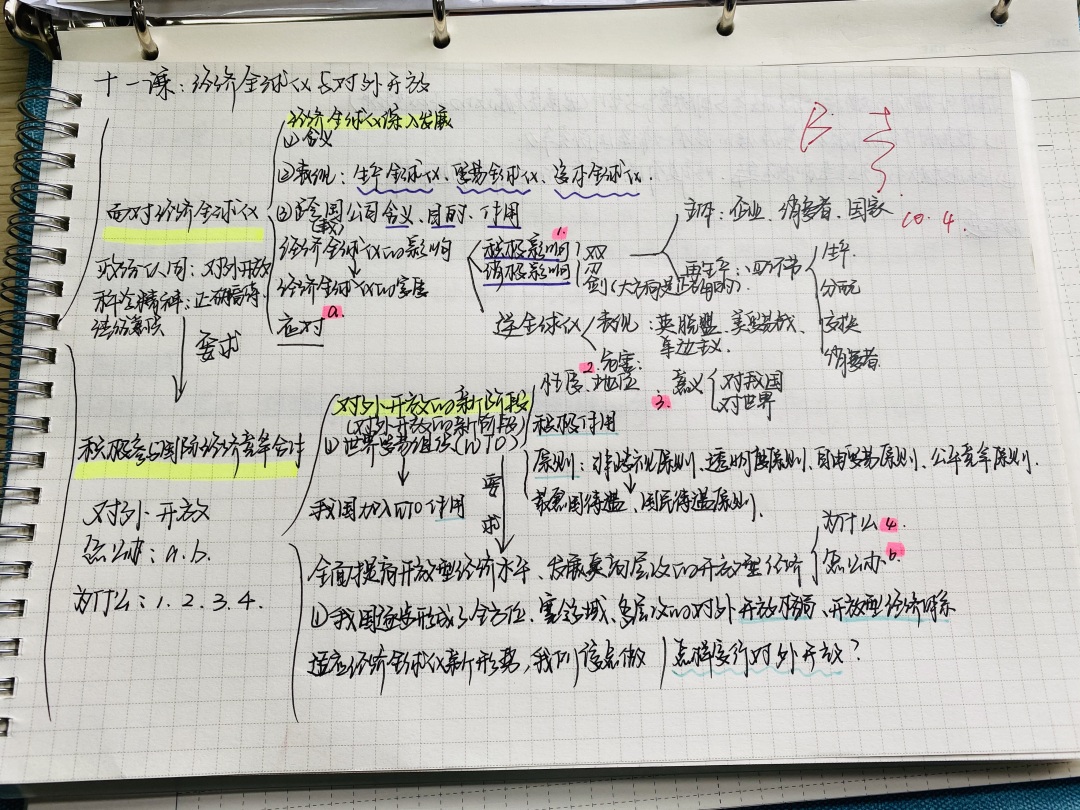 十一课：经济全球化与对外开放
B 李
10.4.
面对经济全球化
政治认同：对外开放
科学精神：正确看待
法治意识
要求
积极参与国际经济竞争合作
对外开放
怎么办：a.b.
为什么：1.2.3.4.
经济全球化深入发展
①含义
②表现：生产全球化、贸易全球化、资本全球化.
③跨国公司含义、目的、作用
(载)
经济全球化的影响
经济全球化的实质
应对 a.
1.
积极影响
消极影响
双
刃
剑(大方向是正确的).
主体：企业、消费者、国家
再生产：四环节
生产
分配
交换
消费者
逆全球化
表现：英脱盟、美贸易战、
单边主义.
危害:
对外开放的新阶段
(对外开放的新阶段)
①世界贸易组织(WTO)
2.
性质、地位
3.
意义
对我国
对世界
积极作用
原则：非歧视原则、透明度原则、自由贸易原则、公平竞争原则.
最惠国待遇、国民待遇原则.
我国加入WTO作用
要求
全面提高开放型经济水平、发展更高层次的开放型经济
为什么 4.
怎么办 b.
①我国逐步形成了全方位、宽领域、多层次的对外开放格局、开放型经济体系
适应经济全球化新形势，我们该怎做
怎样实行对外开放？